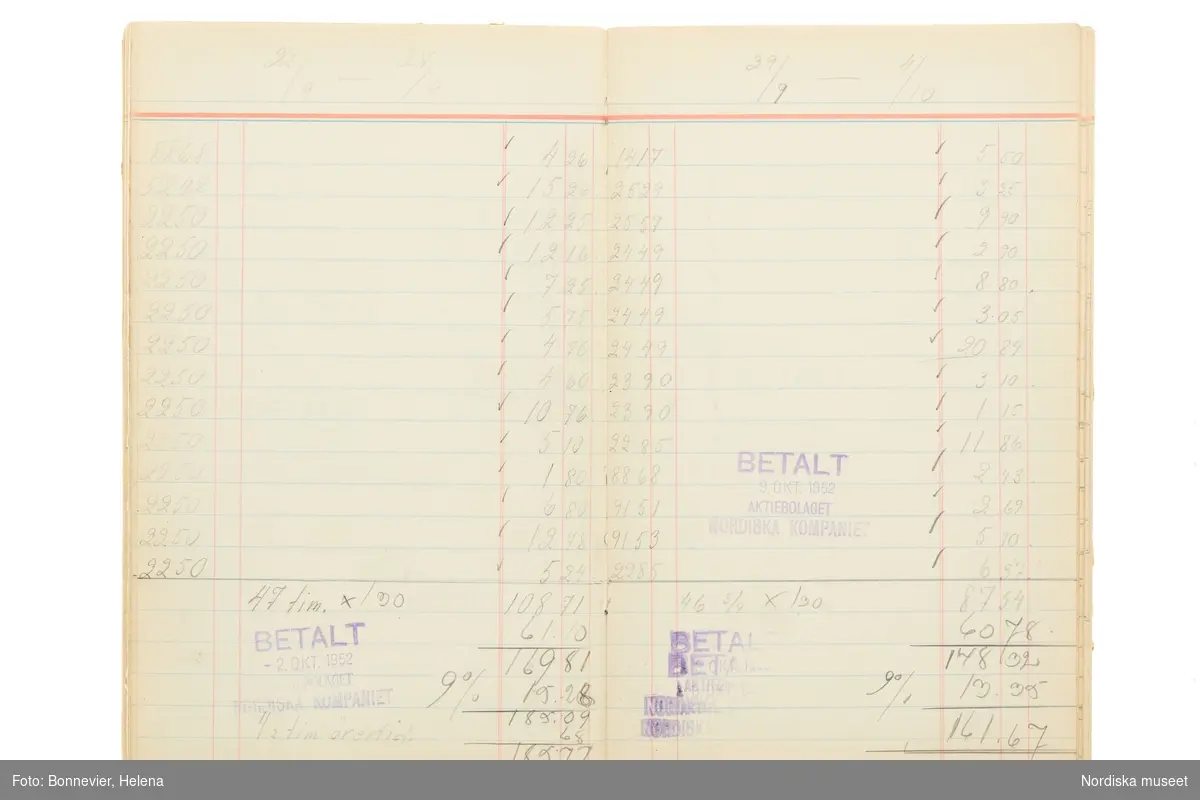 22/9 — 28/9
8868 4 26
15 20
2250 12 25
2250 12 16
2250 7 25
2250 5 75
2250 4 76
2250 4 60
2250 10 76
5 10
1 80
2250 6 80
2250 12 98
2250 5 24
47 tim. x 1 30 108 71
61.10
169 81
9% 15.28
185.09
68
185.77
BETALT
- 2. OKT. 1952
NORDISKA KOMPANIET
1/2 tim övertid.
29/9 — 4/10
1417 5 50
2529 3 25
2559 9 90
2449 2 90
2449 8 80
2449 3.05
2449 20 89
2390 3 10
2390 1 15
2285 11 86
8868 2 43
9151 2 69
9153 5 10
2285 6
BETALT
9. OKT. 1952
AKTIEBOLAGET
NORDISKA KOMPANIET
46 3/4 x 1 30 87 54
60 78
148 32
9% 13.35
161.67
BETAL
BET
NORDISK
Foto: Bonnevier, Helena
Nordiska museet